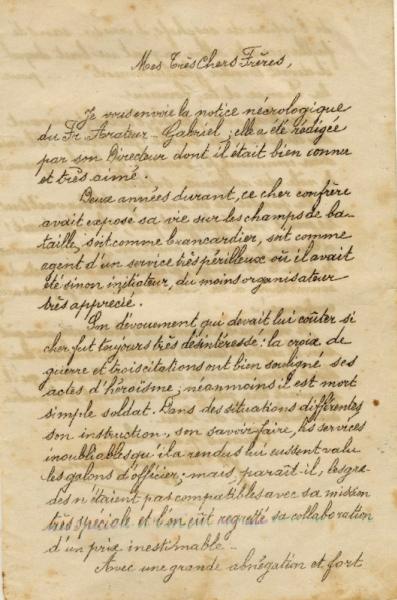 Mes Très Chers Frères,
Je vous envoie la notice nécrologique
du Fr. Arateur-Gabriel; elle a été rédigée
par son Directeur dont il était bien connu
et très aimé.
Deux années durant, ce cher confrère
avait exposé sa vie sur les champs de ba-
taille, soit comme brancardier, soit comme
agent d'un service très périlleux où il avait
été sinon initiateur, du moins organisateur
très apprécié.
Son dévouement qui devait lui coûter si
cher fut toujours très désintéressé: la croix de
guerre et trois citations ont bien souligné ses
actes d'héroïsme; néanmoins il est mort
simple soldat. Dans des situations différentes
son instruction, son savoir-faire, les services
inoubliables qu'il a rendus lui eussent valu
les galons d'officier; mais, paraît-il, les gra-
des n'étaient pas compatibles avec sa mission
très spéciale et l'on eût regretté sa collaboration
d'un prix inestimable.
Avec une grande abnégation et fort